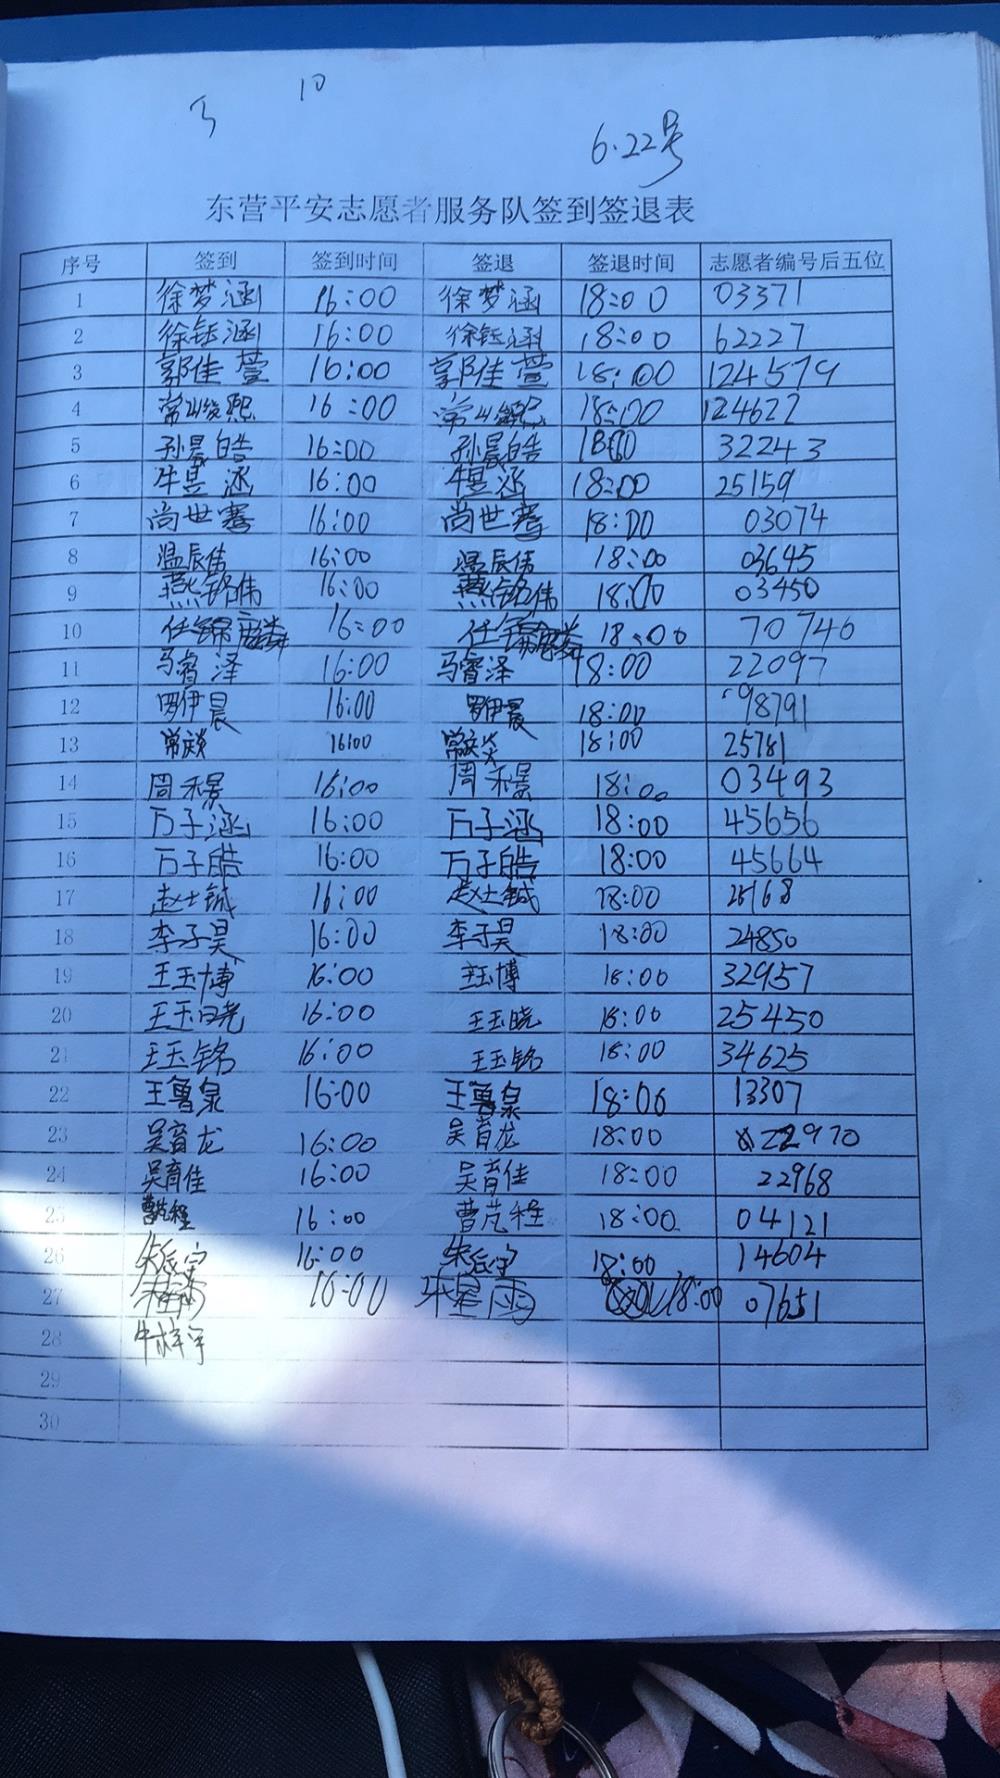 10
6.22号
东营平安志愿者服务队签到签退表
序号 签到 签到时间 签退 签退时间 志愿者编号后五位
1 徐梦涵 16:00 徐梦涵 18:00 03371
2 徐钰涵 16:00 徐钰涵 18:00 62227
3 郭佳萱 16:00 郭佳萱 18:00 124579
4 常 16:00 常 18:00 124622
5 孙晨皓 16:00 孙晨皓 1800 32243
6 牛昱涵 16:00 牛昱涵 18:00 25159
7 尚世骞 16:00 尚世骞 18:00 03074
8 温辰伟 16:00 温辰伟 18:00 03645
9 燕铭伟 16:00 燕铭伟 18:00 03450
10 任锦麟 16:00 任锦麟 18:00 70740
11 马睿泽 16:00 马睿泽 18:00 22097
12 罗伊晨 16:00 罗伊晨 18:00 98791
13 常 16:00 常 18:00 25781
14 周禾景 16:00 周禾景 18:00 03493
15 万子涵 16:00 万子涵 18:00 45656
16 万子皓 16:00 万子皓 18:00 45664
17 赵士铖 16:00 赵士铖 18:00 25168
18 李子昊 16:00 李子昊 18:00 24850
19 王玉博 16:00 王玉博 18:00 32957
20 王玉晓 16:00 王玉晓 18:00 25450
21 王玉铭 16:00 王玉铭 18:00 34625
22 王鲁泉 16:00 王鲁泉 18:00 13307
23 吴育龙 16:00 吴育龙 18:00 22970
24 吴育佳 16:00 吴育佳 18:00 22968
25 曹芃程 16:00 曹芃程 18:00 04121
26 朱辰宇 16:00 朱辰宇 18:00 14604
27 16:00 雨 18:00 07651
28 牛梓宇
29
30